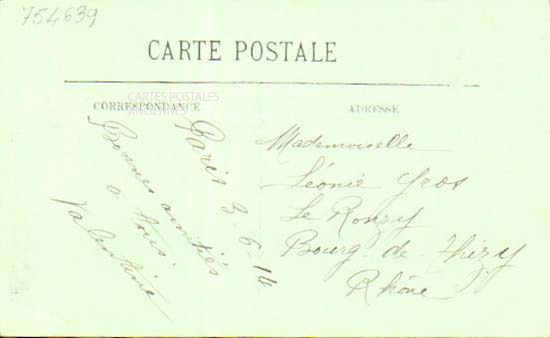 754639
CARTE POSTALE
CARTES POSTALES
ANCIENNES
CORRESPONDANCE
ADRESSE
Paris 3-6-14
Bonnes amitiés
à tous.
Valentine
Mademoiselle
Léonie Gros
Le Ronzy
Bourg-de-Thizy
Rhône